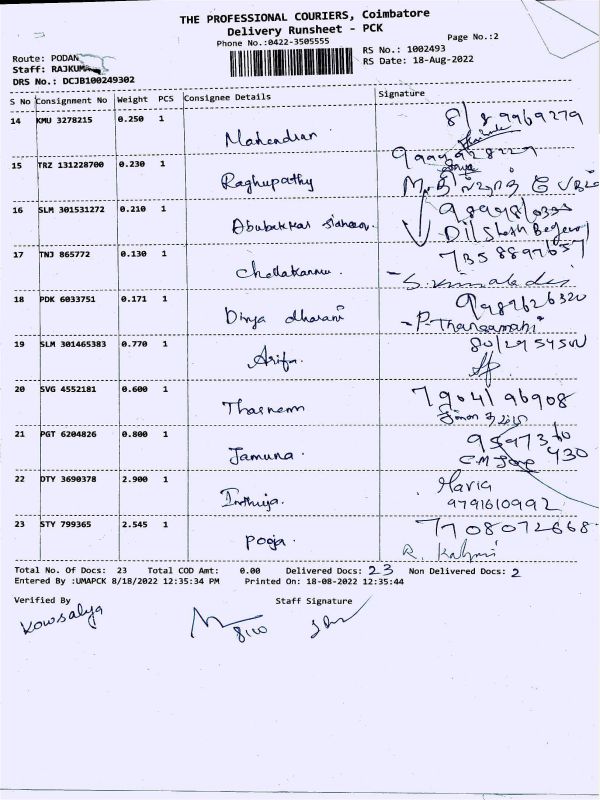 THE PROFESSIONAL COURIERS, Coimbatore
Delivery Runsheet - PCK
Phone No.:0422-3505555
Page No.:2
Route: PODAN
RS No.: 1002493
Staff: RAJKUM
RS Date: 18-Aug-2022
DRS No.: DCJB100249302
S No Consignment No Weight PCS Consignee Details Signature
14 KMU 3278215 0.250 1 Mahendran
15 TRZ 131228700 0.230 1 Raghupathy
16 SLM 301531272 0.210 1 Abubakkar
Dil Shath Begum
17 TNJ 865772 0.130 1 Chellakannu.
7358897657
18 PDK 6033751 0.171 1 Divya dharani
-P-Thangamani
19 SLM 301465383 0.770 1 Arifa.
20 SVG 4552181 0.600 1 Thasneem
7904196908
21 PGT 6204826 0.800 1 Jamuna.
430
22 DTY 3690378 2.900 1
Maria
9791610992
23 STY 799365 2.545 1 pooja.
7708072668
Total No. Of Docs: 23 Total COD Amt: 0.00 Delivered Docs: 23 Non Delivered Docs: 2
Entered By :UMAPCK 8/18/2022 12:35:34 PM Printed On: 18-08-2022 12:35:44
Verified By Staff Signature
Kowsalya